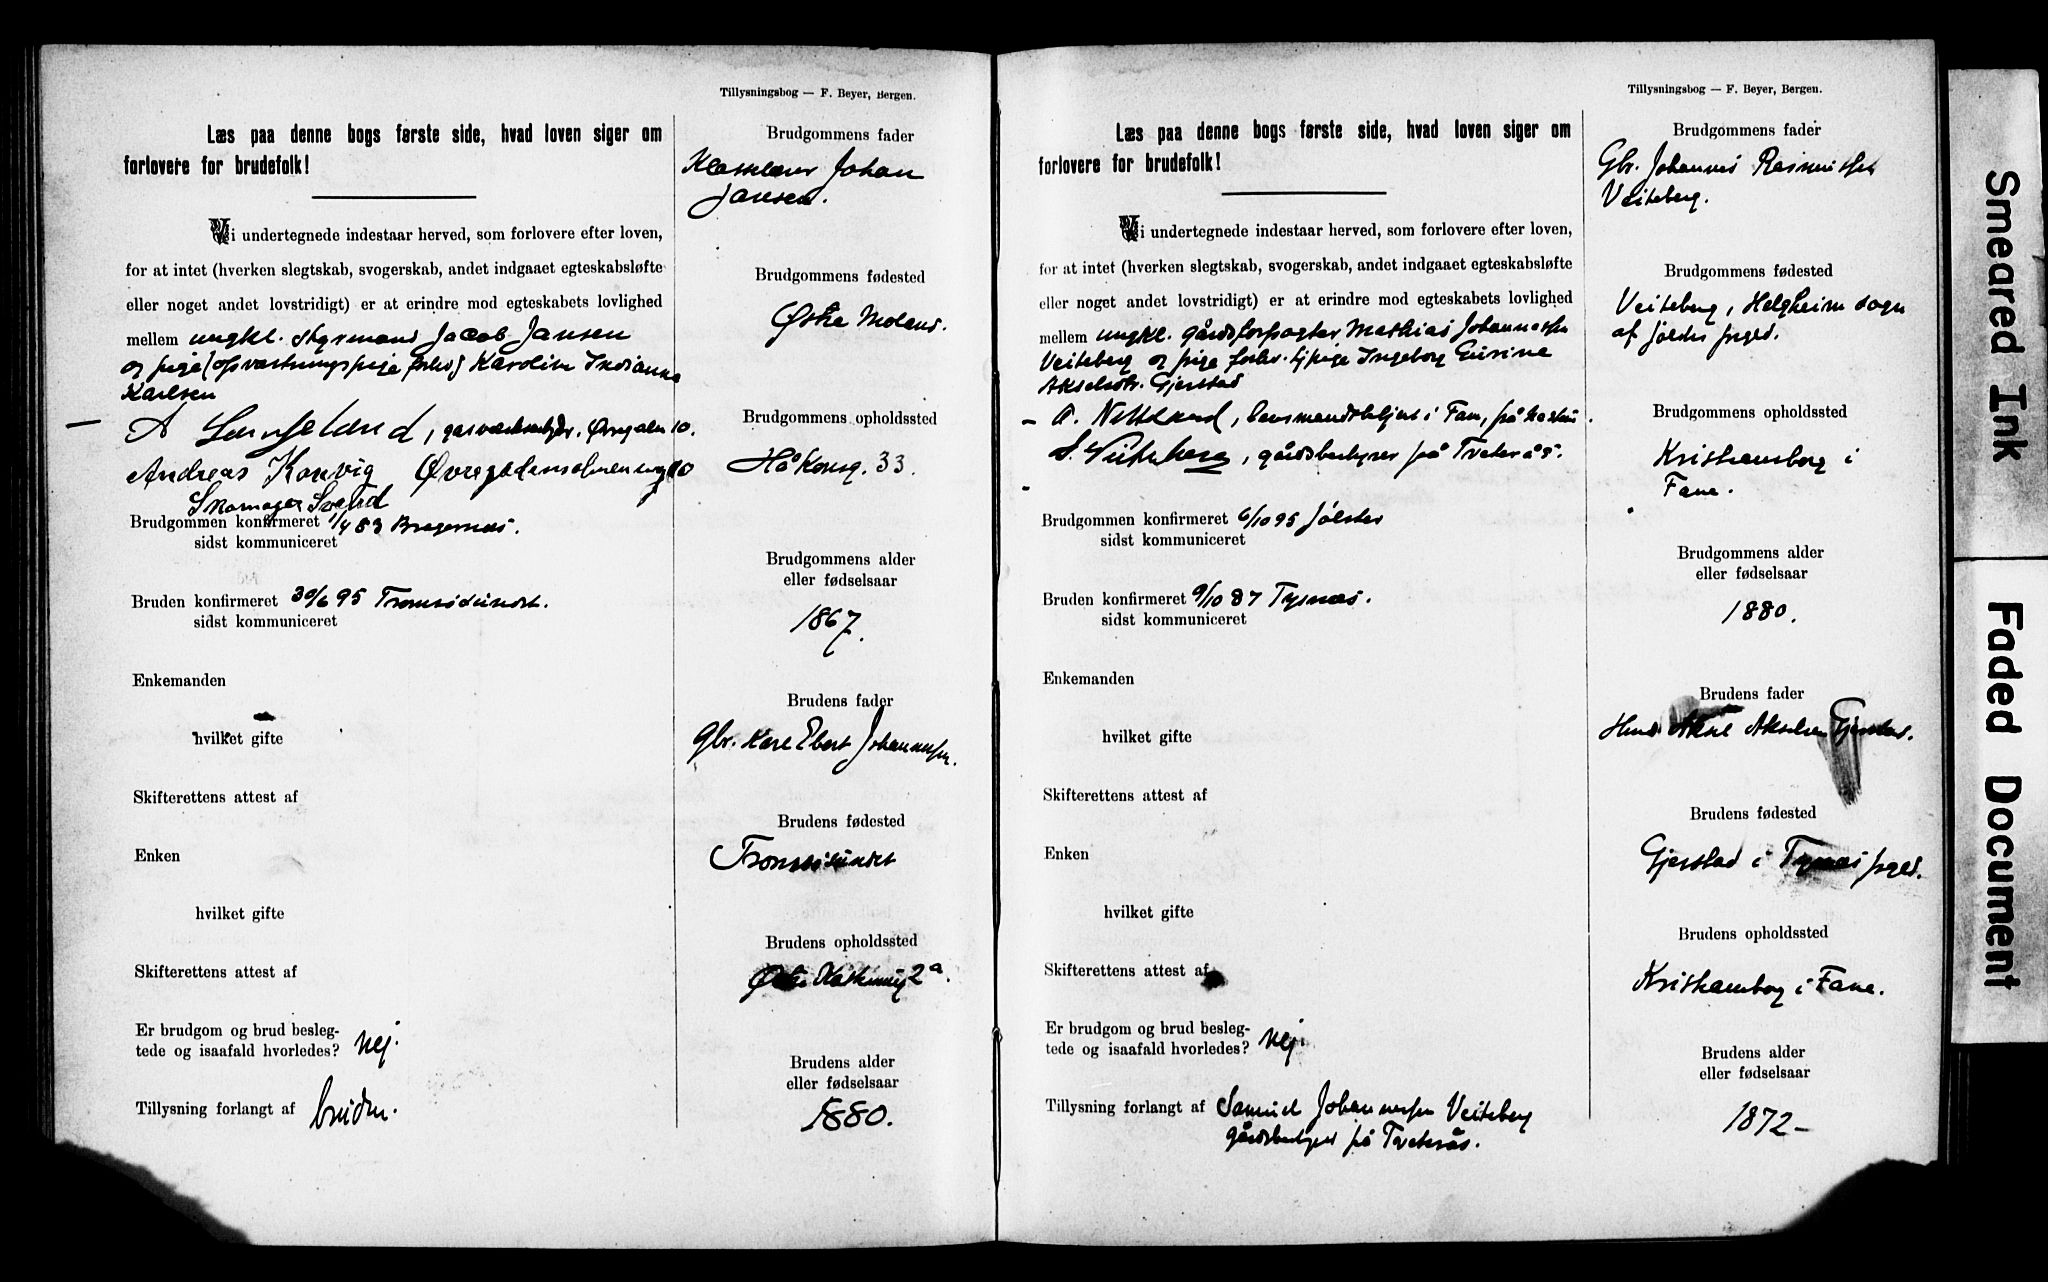 Tillysningsbog — F. Beyer, Bergen.
Læs paa denne bogs første side, hvad loven siger om
forlovere for brudefolk!
Vi undertegnede indestaar herved, som forlovere efter loven,
for at intet (hverken slegtskab, svogerskab, andet indgaaet egteskabsløfte
eller noget andet lovstridigt) er at erindre mod egteskabets lovlighed
mellem ungkl. styrmand Jacob Jansen
og pige (opvartningspige forhv) Karoline Indianna
Karlsen
A , gasværksarbjdr. Øvregaden 10.
Andreas Konvig Øvregadensalmenning 10
Skomager Svend
Brudgommen konfirmeret 1/4 83 Bragernæs.
sidst kommuniceret
Bruden konfirmeret 30/6 95 Tromsösundet.
sidst kommuniceret
Enkemanden
hvilket gifte
Skifterettens attest af
Enken
hvilket gifte
Skifterettens attest af
Er brudgom og brud besleg-
tede og isaafald hvorledes? Nej.
Tillysning forlangt af bruden.
Brudgommens fader
Johan
Jansen.
Brudgommens fødested
Østre Molens.
Brudgommens opholdssted
Håkonsg. 33.
Brudgommens alder
eller fødselsaar
1867.
Brudens fader
Gbr. Karl Ebert Johannessen.
Brudens fødested
Tromsösundet
Brudens opholdssted
2a.
Brudens alder
eller fødselsaar
1880.
Tillysningsbog — F. Beyer, Bergen.
Læs paa denne bogs første side, hvad loven siger om
forlovere for brudefolk!
Vi undertegnede indestaar herved, som forlovere efter loven,
for at intet (hverken slegtskab, svogerskab, andet indgaaet egteskabsløfte
eller noget andet lovstridigt) er at erindre mod egteskabets lovlighed
mellem ungkl. gårdsforpagter Mathias Johannessen
Veiteberg og pige forhv. tj.pige Ingeborg Gurine
Akselsdtr. Gjerstad
A. Nettland, lensmandsbetjent i Fane, på
S. Veiteberg, gårdsbestyrer på Tveterås.
Brudgommen konfirmeret 6/10 95 Jölster
sidst kommuniceret
Bruden konfirmeret 9/10 87 Tysnæs.
sidst kommuniceret
Enkemanden
hvilket gifte
Skifterettens attest af
Enken
hvilket gifte
Skifterettens attest af
Er brudgom og brud besleg-
tede og isaafald hvorledes? Nej.
Tillysning forlangt af Samuel Johannessen Veiteberg
gårdsbestyrer på Tveterås.
Brudgommens fader
Gbr. Johannes Rasmussen
Veiteberg.
Brudgommens fødested
Veiteberg, Helgheim sogn
af Jölster prgld.
Brudgommens opholdssted
Kristianborg i
Fane.
Brudgommens alder
eller fødselsaar
1880.
Brudens fader
Aksel Akselsen Gjerstad.
Brudens fødested
Gjerstad i Tysnæs prgld.
Brudens opholdssted
Kristianborg i Fane.
Brudens alder
eller fødselsaar
1872–
Smeared Ink
Faded Document